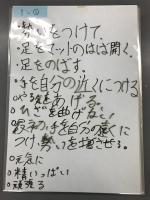 ・勢いをつけて、
・足をマットのはば開く。
・足をのばす。
・手を自分の近くにつける
をあげる。
○ひざを曲げない
最初、手を自分の遠くに
つけ、勢いを増させる。
○元気に
○精いっぱい
○頑張る